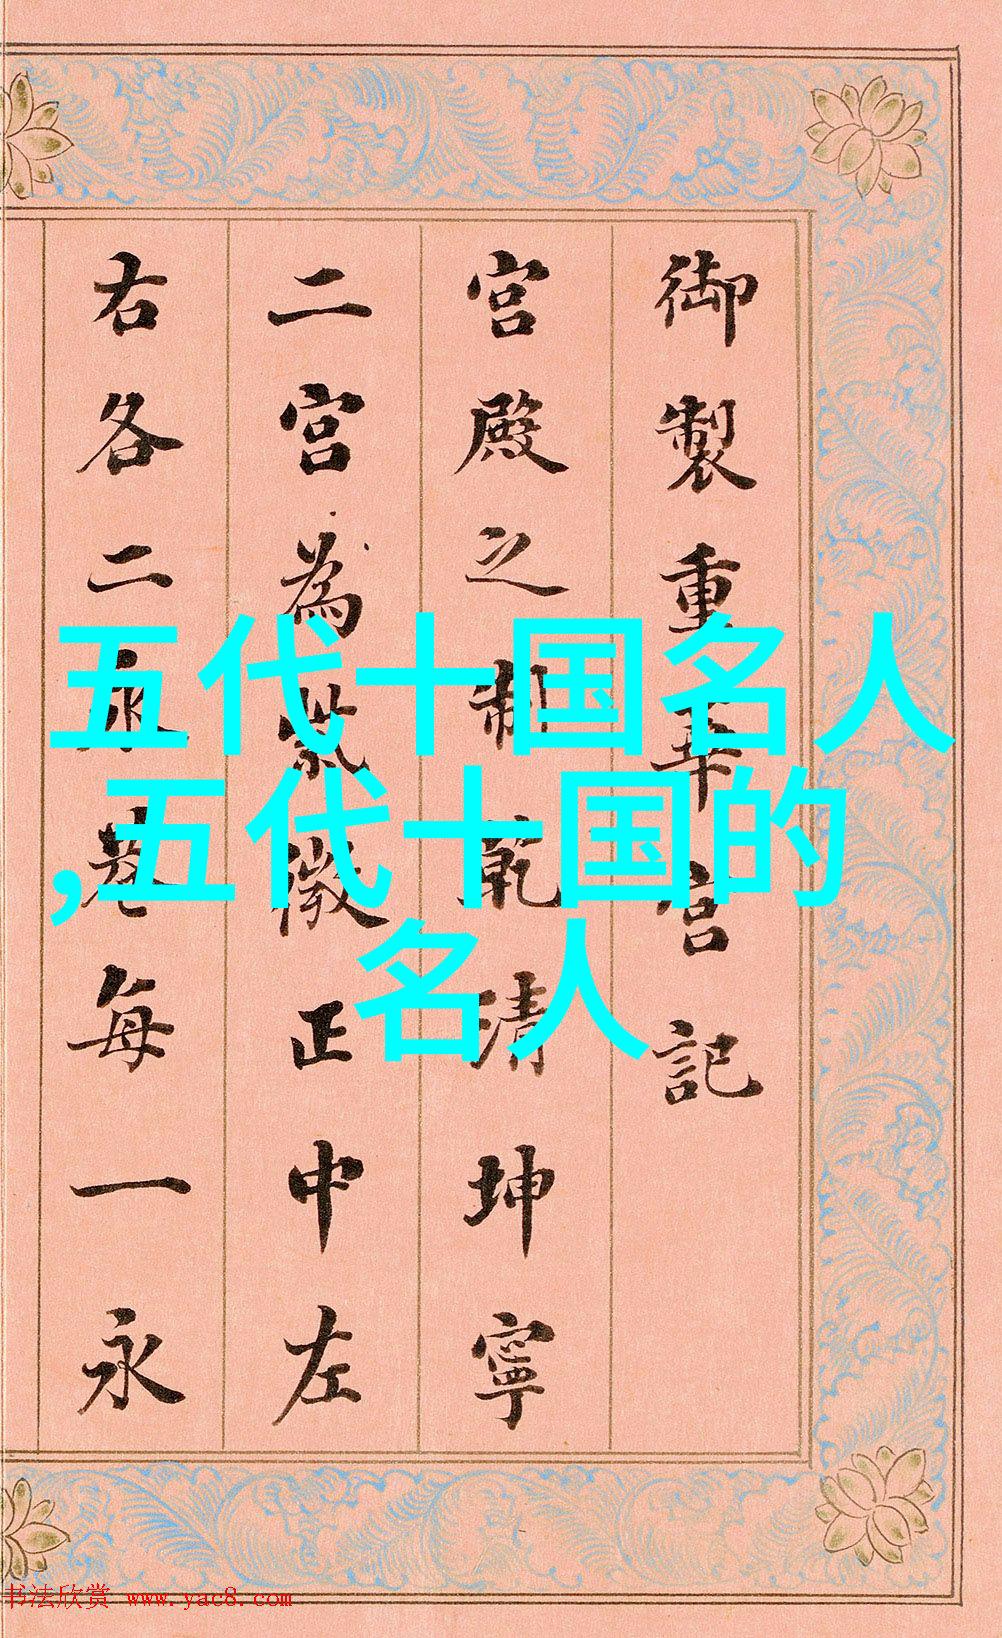 御製重華宮記
宮殿之制乾清坤寧
二宮為紫微正中左
右各二永巷每一永
五代十国名人
,五代十国的
名人
书法欣赏 www.yac8.com